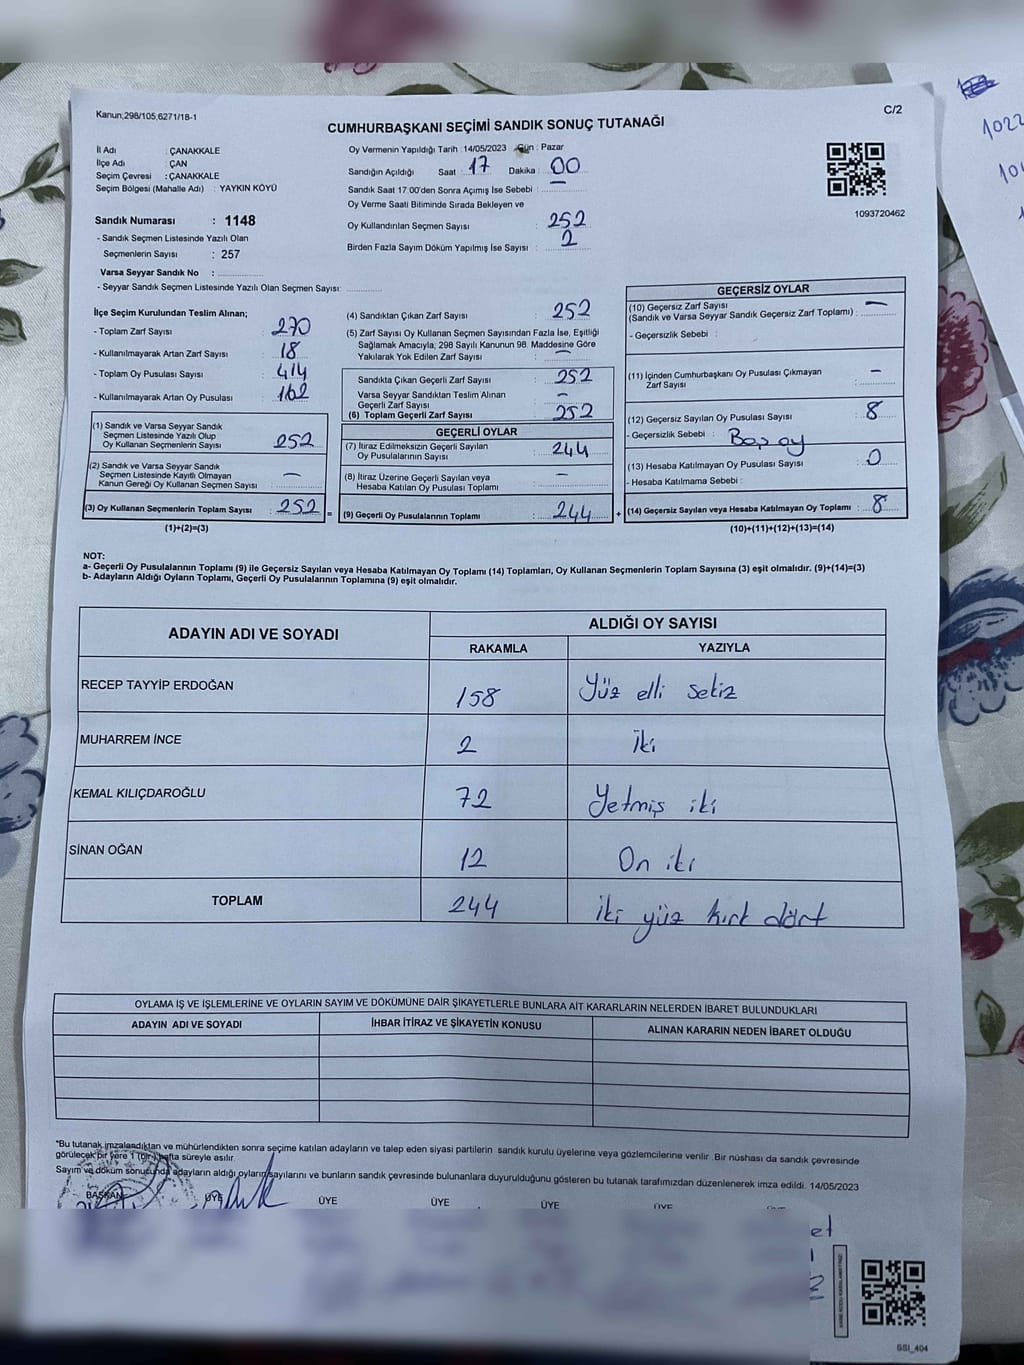 Kanun;298/105,6271/18-1
C/2
CUMHURBAŞKANI SEÇİMİ SANDIK SONUÇ TUTANAĞI
İl Adı : ÇANAKKALE
İlçe Adı : ÇAN
Seçim Çevresi : ÇANAKKALE
Seçim Bölgesi (Mahalle Adı) : YAYKIN KÖYÜ
Sandık Numarası : 1148
- Sandık Seçmen Listesinde Yazılı Olan
Seçmenlerin Sayısı : 257
Varsa Seyyar Sandık No :
- Seyyar Sandık Seçmen Listesinde Yazılı Olan Seçmen Sayısı:
Oy Vermenin Yapıldığı Tarih : 14/05/2023 Gün : Pazar
Sandığın Açıldığı Saat : 17 Dakika : 00
Sandık Saat 17:00'den Sonra Açımış İse Sebebi : —
Oy Verme Saati Bitiminde Sırada Bekleyen ve
Oy Kullandırılan Seçmen Sayısı : 252
Birden Fazla Sayım Döküm Yapılmış İse Sayısı : 2
1093720462
İlçe Seçim Kurulundan Teslim Alınan;
- Toplam Zarf Sayısı : 270
- Kullanılmayarak Artan Zarf Sayısı : 18
- Toplam Oy Pusulası Sayısı : 414
- Kullanılmayarak Artan Oy Pusulası : 162
(1) Sandık ve Varsa Seyyar Sandık
Seçmen Listesinde Yazılı Olup
Oy Kullanan Seçmenlerin Sayısı : 252
(2) Sandık ve Varsa Seyyar Sandık
Seçmen Listesinde Kayıtlı Olmayan
Kanun Gereği Oy Kullanan Seçmen Sayısı : —
(3) Oy Kullanan Seçmenlerin Toplam Sayısı : 252 =
(1)+(2)=(3)
(4) Sandıktan Çıkan Zarf Sayısı : 252
(5) Zarf Sayısı Oy Kullanan Seçmen Sayısından Fazla İse, Eşitliği
Sağlamak Amacıyla; 298 Sayılı Kanunun 98. Maddesine Göre
Yakılarak Yok Edilen Zarf Sayısı : —
Sandıkta Çıkan Geçerli Zarf Sayısı : 252
Varsa Seyyar Sandıktan Teslim Alınan
Geçerli Zarf Sayısı : —
(6) Toplam Geçerli Zarf Sayısı : 252
GEÇERLİ OYLAR
(7) İtiraz Edilmeksizin Geçerli Sayılan
Oy Pusulalarının Sayısı : 244
(8) İtiraz Üzerine Geçerli Sayılan veya
Hesaba Katılan Oy Pusulası Toplamı : —
(9) Geçerli Oy Pusulalarının Toplamı : 244 +
GEÇERSİZ OYLAR
(10) Geçersiz Zarf Sayısı
(Sandık ve Varsa Seyyar Sandık Geçersiz Zarf Toplamı) : —
- Geçersizlik Sebebi :
(11) İçinden Cumhurbaşkanı Oy Pusulası Çıkmayan
Zarf Sayısı : —
(12) Geçersiz Sayılan Oy Pusulası Sayısı : 8
- Geçersizlik Sebebi : Boş oy
(13) Hesaba Katılmayan Oy Pusulası Sayısı : 0
- Hesaba Katılmama Sebebi :
(14) Geçersiz Sayılan veya Hesaba Katılmayan Oy Toplamı : 8
(10)+(11)+(12)+(13)=(14)
NOT:
a- Geçerli Oy Pusulalarının Toplamı (9) ile Geçersiz Sayılan veya Hesaba Katılmayan Oy Toplamı (14) Toplamları, Oy Kullanan Seçmenlerin Toplam Sayısına (3) eşit olmalıdır. (9)+(14)=(3)
b- Adayların Aldığı Oyların Toplamı, Geçerli Oy Pusulalarının Toplamına (9) eşit olmalıdır.
ADAYIN ADI VE SOYADI ALDIĞI OY SAYISI
RAKAMLA YAZIYLA
RECEP TAYYİP ERDOĞAN 158 Yüz elli sekiz
MUHARREM İNCE 2 İki
KEMAL KILIÇDAROĞLU 72 Yetmiş iki
SİNAN OĞAN 12 On iki
TOPLAM 244 iki yüz kırk dört
OYLAMA İŞ VE İŞLEMLERİNE VE OYLARIN SAYIM VE DÖKÜMÜNE DAİR ŞİKAYETLERLE BUNLARA AİT KARARLARIN NELERDEN İBARET BULUNDUKLARI
ADAYIN ADI VE SOYADI İHBAR İTİRAZ VE ŞİKAYETİN KONUSU ALINAN KARARIN NEDEN İBARET OLDUĞU
"Bu tutanak imzalandıktan ve mühürlendikten sonra seçime katılan adayların ve talep eden siyasi partilerin sandık kurulu üyelerine veya gözlemcilerine verilir .Bir nüshası da sandık çevresinde
görülecek bir yere 1 (bir) hafta süreyle asılır.
Sayım ve döküm sonucunda adayların aldığı oyların sayılarını ve bunların sandık çevresinde bulunanlara duyurulduğunu gösteren bu tutanak tarafımızdan düzenlenerek imza edildi. 14/05/2023
BAŞKAN ÜYE ÜYE ÜYE ÜYE ÜYE
GSI_404
1022